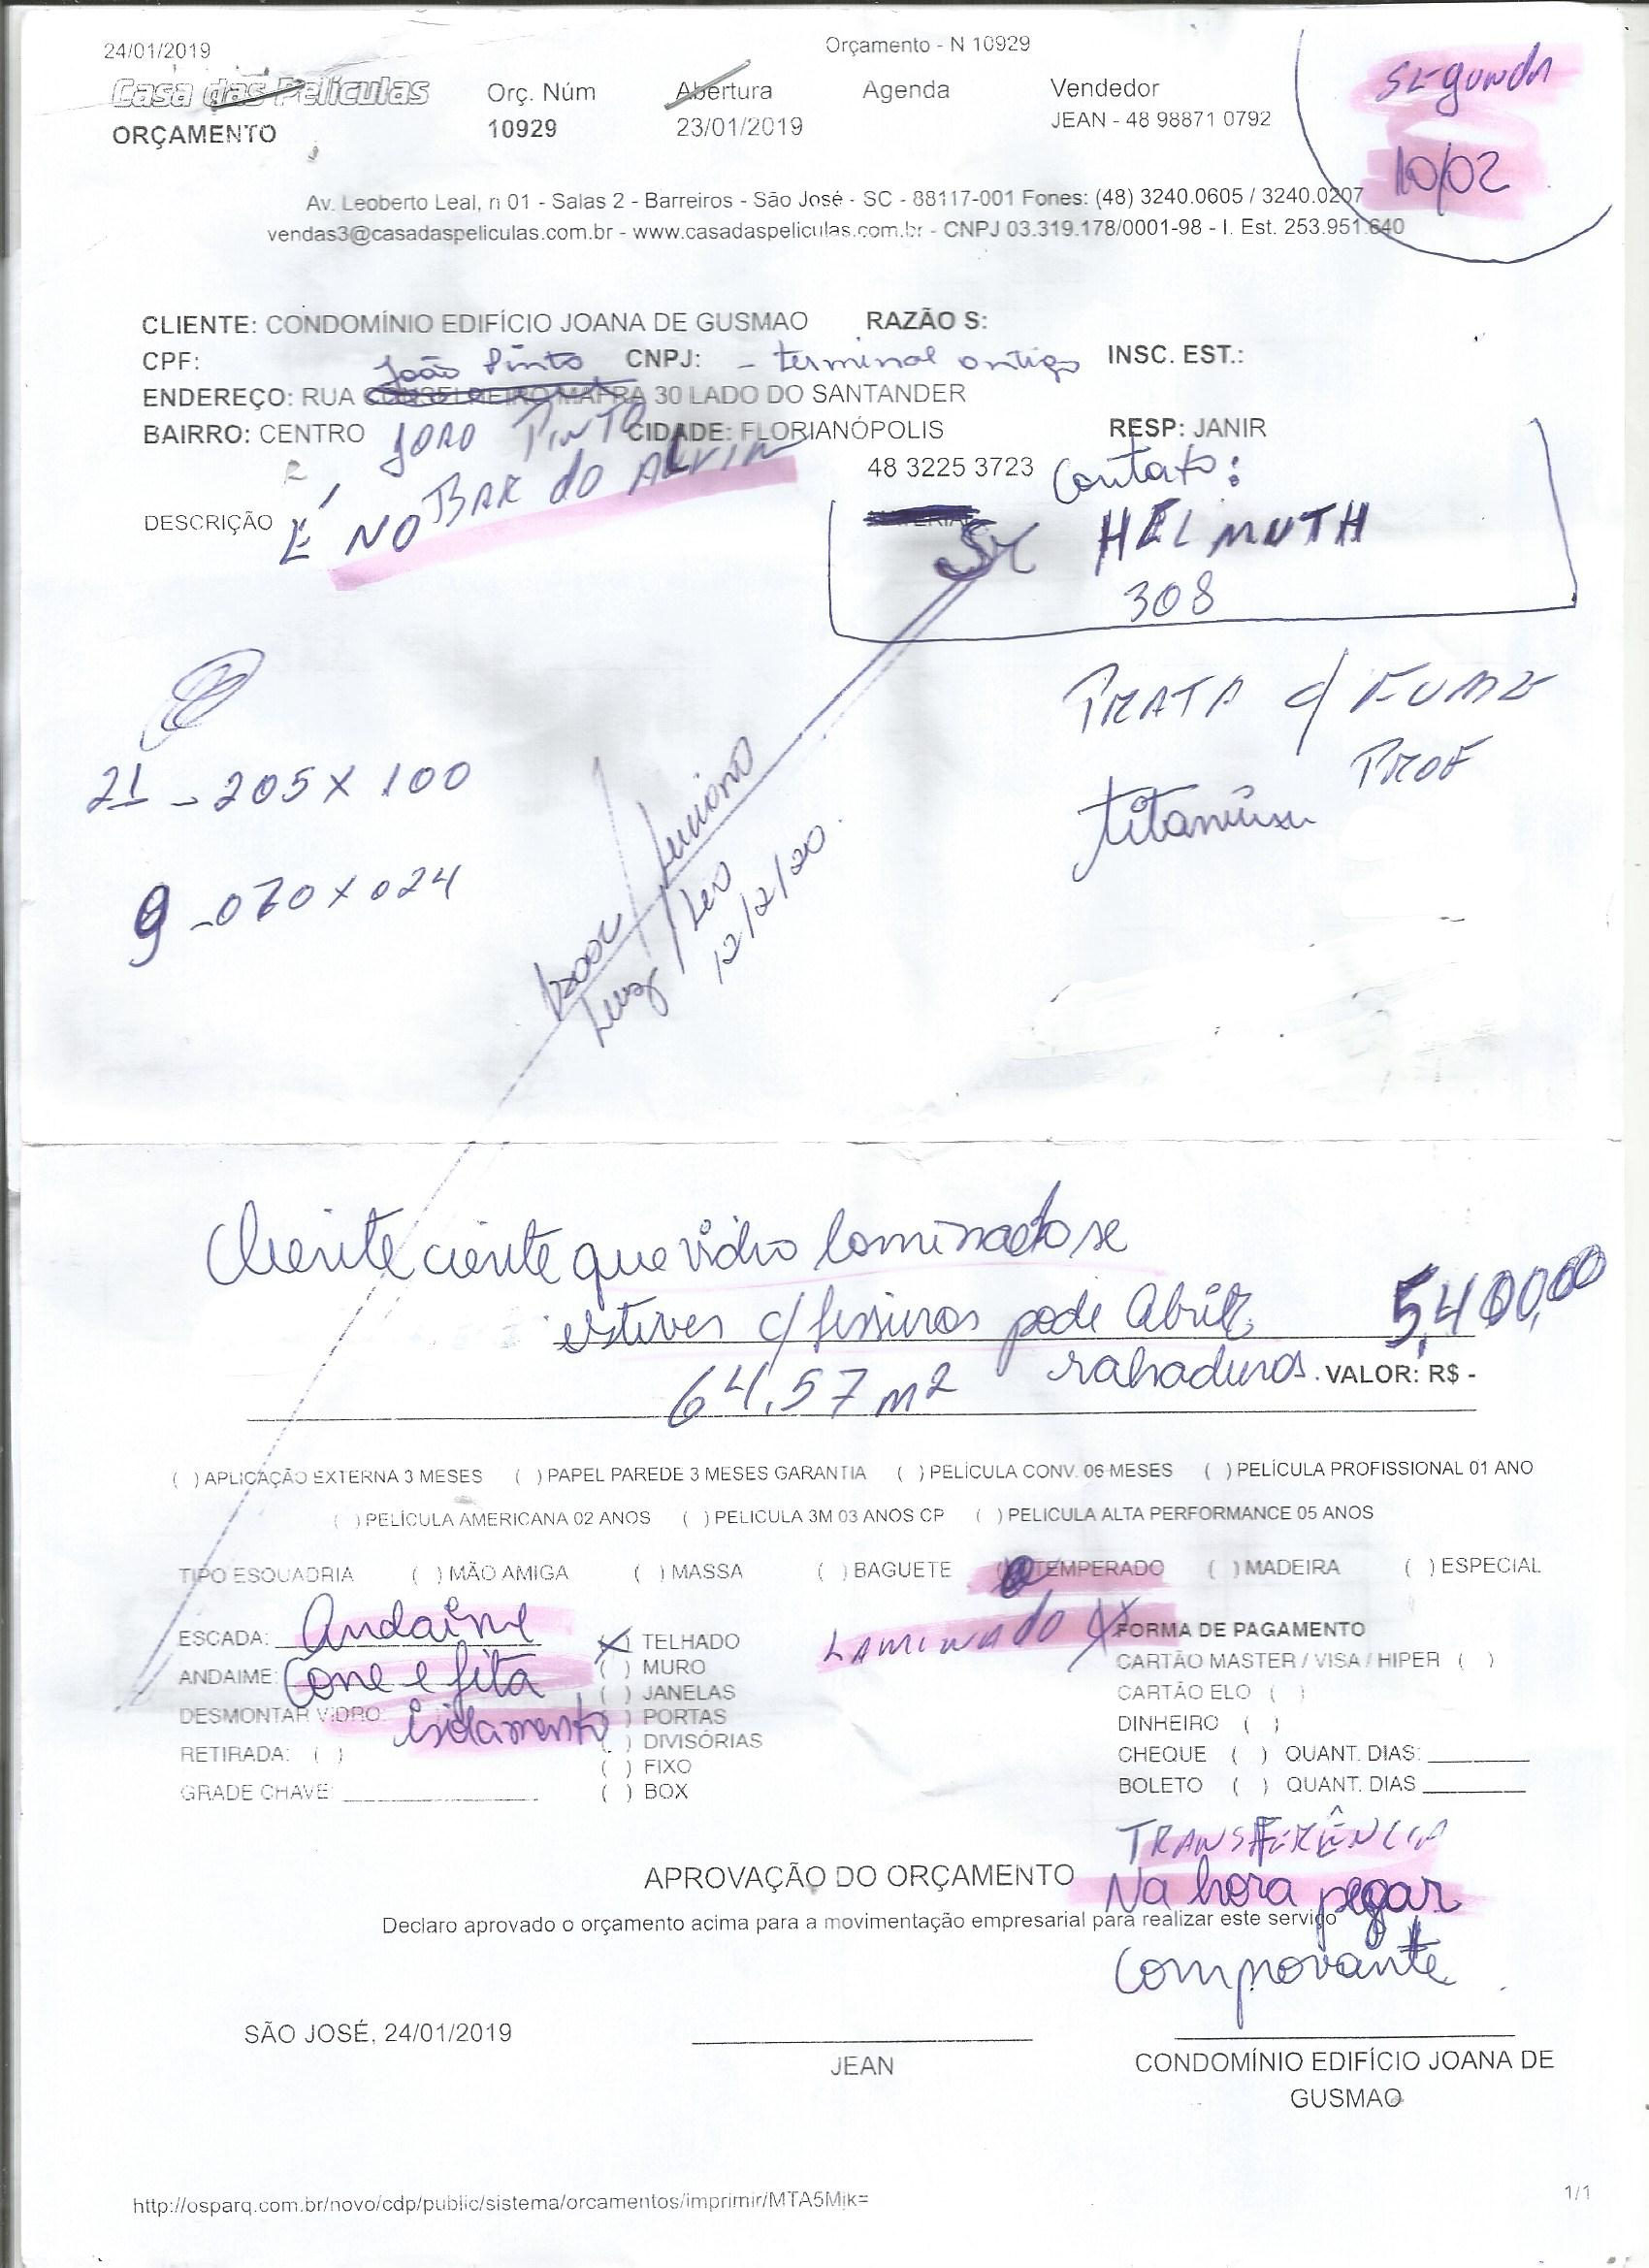 24/01/2019 Orçamento - N 10929
Segunda
10/02
Casa das Películas Orç. Núm Abertura Agenda Vendedor
ORÇAMENTO 10929 23/01/2019 JEAN - 48 98871 0792
Av. Leoberto Leal, n 01 - Salas 2 - Barreiros - São José - SC - 88117-001 Fones: (48) 3240.0605 / 3240.0207
vendas3@casadaspeliculas.com.br - www.casadaspeliculas.com.br - CNPJ 03.319.178/0001-98 - I. Est. 253.951.640
CLIENTE: CONDOMÍNIO EDIFÍCIO JOANA DE GUSMAO RAZÃO S:
CPF: João Pinto CNPJ: - terminal antigo INSC. EST.:
ENDEREÇO: RUA CONSELHEIRO MAFRA 30 LADO DO SANTANDER
BAIRRO: CENTRO JOAO PINTO CIDADE: FLORIANÓPOLIS RESP: JANIR
48 3225 3723 Contato:
DESCRIÇÃO É NO BAR do ALVIM MATERIAL
Sr HELMUTH
308
PRATA c/ FUME
PROF
titanium
21 - 205 X 100
9 - 070 X 024
Luciano
Luiz / Leo
12/2/20.
Cliente ciente que vidro laminado se
estiver c/ fissuras pode Abrir 5,400,00
64,57 m2 rachaduras. VALOR: R$ -
( ) APLICAÇÃO EXTERNA 3 MESES ( ) PAPEL PAREDE 3 MESES GARANTIA ( ) PELÍCULA CONV. 06 MESES ( ) PELÍCULA PROFISSIONAL 01 ANO
( ) PELÍCULA AMERICANA 02 ANOS ( ) PELICULA 3M 03 ANOS CP ( ) PELICULA ALTA PERFORMANCE 05 ANOS
TIPO ESQUADRIA ( ) MÃO AMIGA ( ) MASSA ( ) BAGUETE ( ) TEMPERADO ( ) MADEIRA ( ) ESPECIAL
LAMINADO X
ESCADA: Andaime
ANDAIME: Cone e fita
DESMONTAR VIDRO: isolamento
RETIRADA: ( )
GRADE CHAVE:
(X) TELHADO
( ) MURO
( ) JANELAS
( ) PORTAS
( ) DIVISÓRIAS
( ) FIXO
( ) BOX
FORMA DE PAGAMENTO
CARTÃO MASTER / VISA / HIPER ( )
CARTÃO ELO ( )
DINHEIRO ( )
CHEQUE ( ) QUANT. DIAS:
BOLETO ( ) QUANT. DIAS
TRANSFERÊNCIA
Na hora pegar
comprovante
APROVAÇÃO DO ORÇAMENTO
Declaro aprovado o orçamento acima para a movimentação empresarial para realizar este serviço
SÃO JOSÉ, 24/01/2019
JEAN
CONDOMÍNIO EDIFÍCIO JOANA DE
GUSMAO
http://osparq.com.br/novo/cdp/public/sistema/orcamentos/imprimir/MTA5Mjk=
1/1